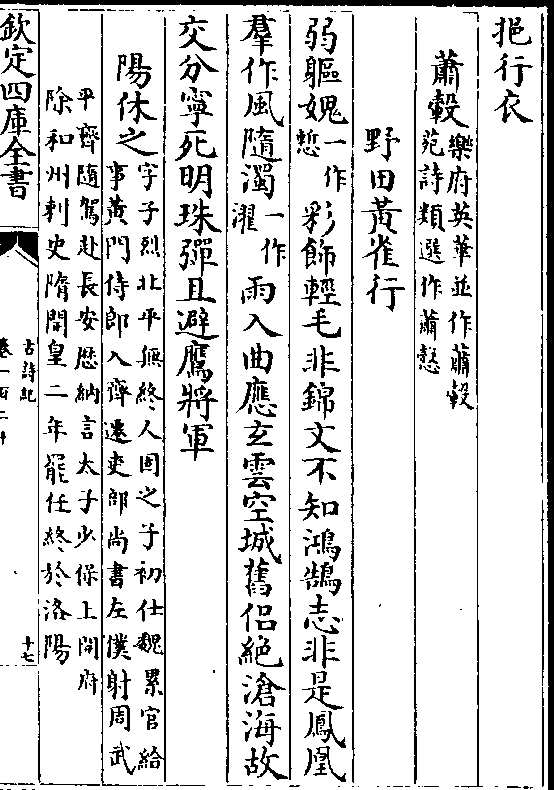 挹行衣
蕭毅 樂府英華並作蕭毅
苑詩類選作蕭慤
野田黃雀行
弱軀媿一作慙彩飾輕毛非錦文不知鴻鵠志非是鳳凰
羣作風隨濁一作濯雨入曲應玄雲空城舊侶絶滄海故
交分寧死明珠彈且避鷹將軍
陽休之 字子烈北平無終人固之子初仕魏累官給
事黃門侍郎入齊遷吏部尚書左僕射周武
平齊隨駕赴長安歴納言太子少保上開府
除和州刺史隋開皇二年罷任終於洛陽
欽定四庫全書
古詩紀
卷一百二十
十七